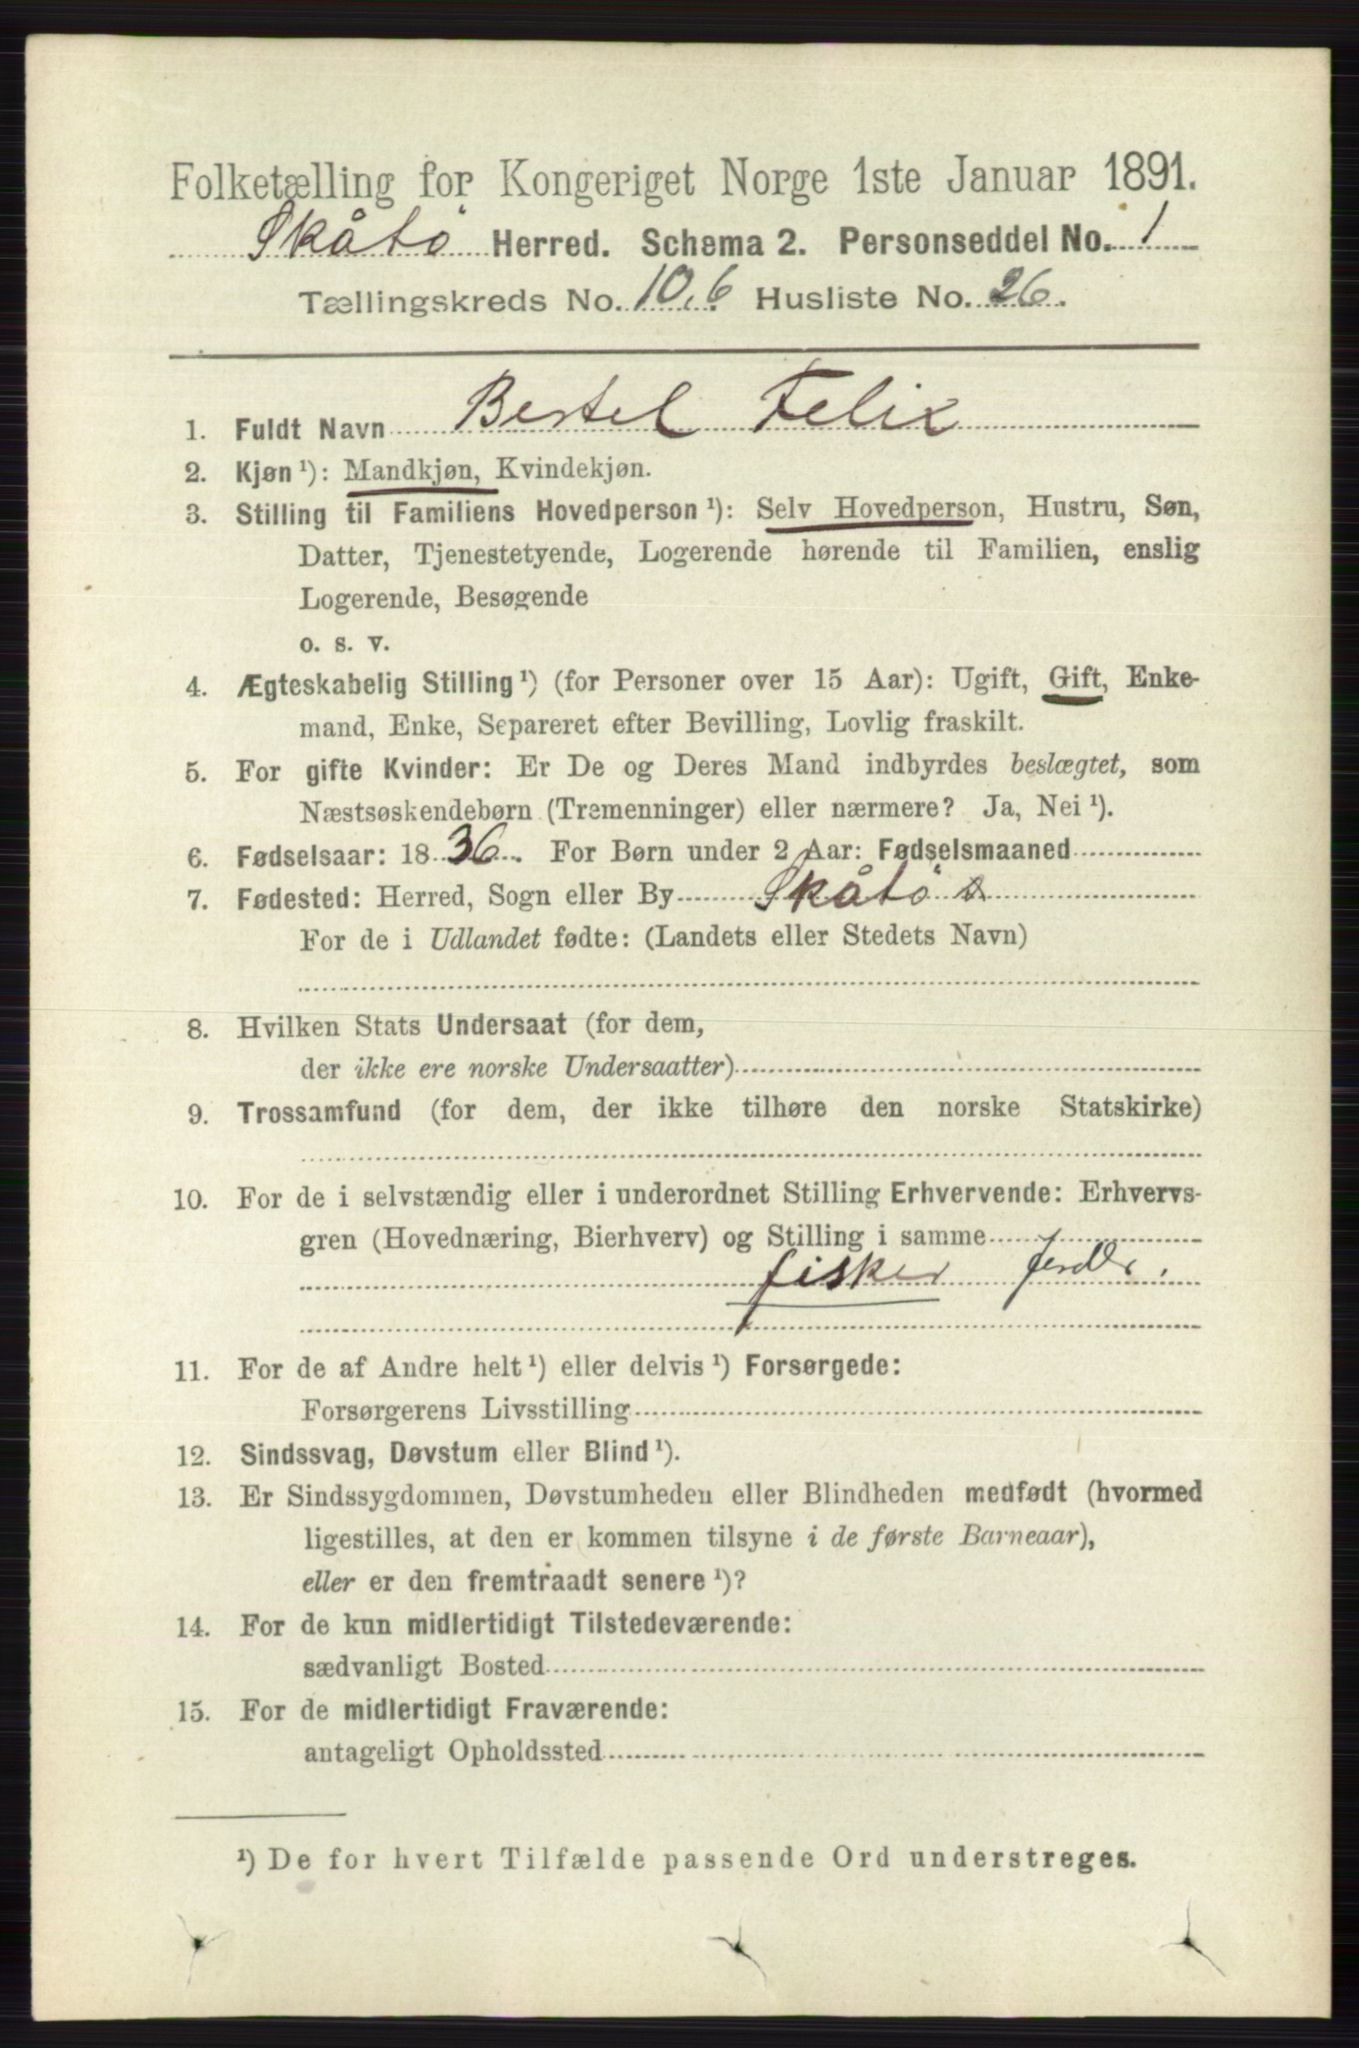 Folketælling for Kongeriget Norge 1ste Januar 1891.
Skåtö Herred. Schema 2. Personseddel No. 1
Tællingskreds No. 10.6 Husliste No. 26.
1. Fuldt Navn Bertel Felix
2. Kjøn ¹): Mandkjøn, Kvindekjøn.
3. Stilling til Familiens Hovedperson ¹): Selv Hovedperson, Hustru, Søn,
Datter, Tjenestetyende, Logerende hørende til Familien, enslig
Logerende, Besøgende
o. s. v.
4. Ægteskabelig Stilling ¹) (for Personer over 15 Aar): Ugift, Gift, Enke-
mand, Enke, Separeret efter Bevilling, Lovlig fraskilt.
5. For gifte Kvinder: Er De og Deres Mand indbyrdes beslægtet, som
Næstsøskendebørn (Tremenninger) eller nærmere? Ja, Nei ¹).
6. Fødselsaar: 1836. For Børn under 2 Aar: Fødselsmaaned
7. Fødested: Herred, Sogn eller By Skåtö
For de i Udlandet fødte: (Landets eller Stedets Navn)
8. Hvilken Stats Undersaat (for dem,
der ikke ere norske Undersaatter)
9. Trossamfund (for dem, der ikke tilhøre den norske Statskirke)
10. For de i selvstændig eller i underordnet Stilling Erhvervende: Erhvervs-
gren (Hovednæring, Bierhverv) og Stilling i samme
fisker
11. For de af Andre helt ¹) eller delvis ¹) Forsørgede:
Forsørgerens Livsstilling
12. Sindssvag, Døvstum eller Blind ¹).
13. Er Sindssygdommen, Døvstumheden eller Blindheden medfødt (hvormed
ligestilles, at den er kommen tilsyne i de første Barneaar),
eller er den fremtraadt senere ¹)?
14. For de kun midlertidigt Tilstedeværende:
sædvanligt Bosted
15. For de midlertidigt Fraværende:
antageligt Opholdssted
¹) De for hvert Tilfælde passende Ord understreges.